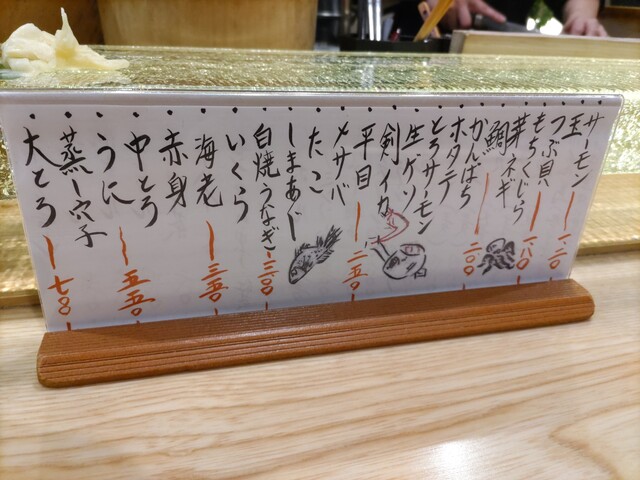 サーモン
玉 一二〇
つぶ貝
もちくじら 一八〇
芽ネギ
鯛
かんぱち 二〇〇
ホタテ
とろサーモン
生ゲソ
剣イカ
平目 二五〇
〆サバ
たこ
しまあじ
白焼うなぎ 三〇〇
いくら
海老 三五〇
赤身
中とろ 五五〇
うに
蒸し穴子
大とろ 七〇〇